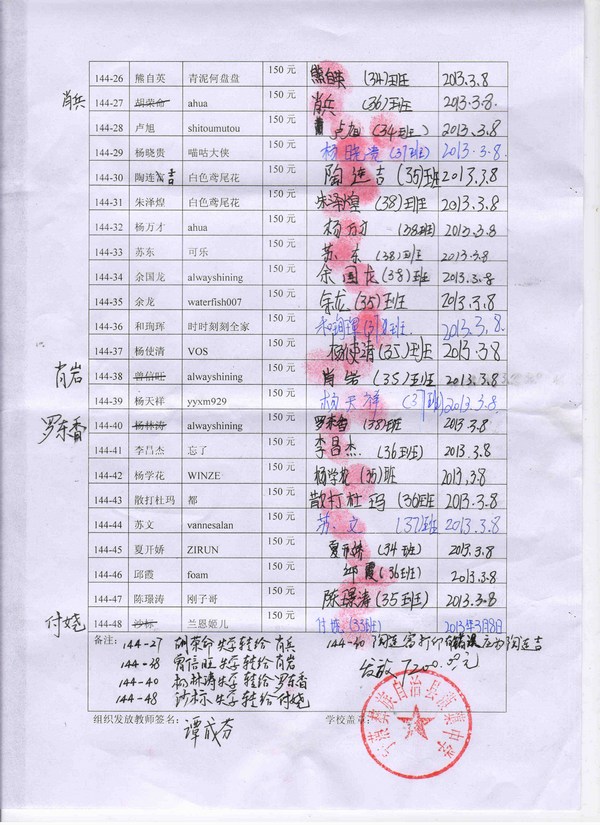 144-26 熊自英 青泥何盘盘 150 元 熊自英 (34)班 2013.3.8
肖兵 144-27 胡荣命 ahua 150 元 肖兵 (36)班 2013.3.8.
144-28 卢旭 shitoumutou 150 元 卢旭 (34班) 2013.3.8
144-29 杨晓贵 喵咕大侠 150 元 杨晓贵 (37班) 2013.3.8.
144-30 陶连吉 白色鸢尾花 150 元 陶连吉 (35)班 2013.3.8
144-31 朱泽煌 白色鸢尾花 150 元 朱泽煌 (38)班 2013.3.8
144-32 杨万才 ahua 150 元 杨万才 (38班) 2013.3.8
144-33 苏东 可乐 150 元 苏东 (38)班 2013.3.8
144-34 余国龙 alwayshining 150 元 余国龙 (38)班 2013.3.8
144-35 余龙 waterfish007 150 元 余龙 (35)班 2013.3.8
144-36 和珣珲 时时刻刻全家 150 元 和珣珲 班 2013.3.8.
144-37 杨使清 VOS 150 元 杨使清 (35)班 2013.3.8
肖岩 144-38 曾信旺 alwayshining 150 元 肖岩 (35)班 2013.3.8
144-39 杨天祥 yyxm929 150 元 杨天祥 (37班) 2013.3.8.
罗东香 144-40 杨林涛 alwayshining 150 元 罗东香 (38)班 2013.3.8
144-41 李昌杰 忘了 150 元 李昌杰. (36班) 2013.3.8
144-42 杨学花 WINZE 150 元 杨学花 (35)班 2013.3.8
144-43 散打杜玛 都 150 元 散打杜玛 (36班) 2013.3.8
144-44 苏文 vannesalan 150 元 苏文 (37)班 2013.3.8
144-45 夏开娇 ZIRUN 150 元 夏开娇 (34班) 2013.3.8
144-46 邱霞 foam 150 元 邱霞 (36班) 2013.3.8
144-47 陈璟涛 刚子哥 150 元 陈璟涛 (35班) 2013.3.8
付娆 144-48 沙标 兰恩姬儿 150 元 付娆 (33班) 2013年3月8日
备注: 144-27 胡荣命失学转给肖兵 144-30 陶连 打印错误应为陶连吉
144-38 曾信旺失学转给肖岩 总数 7200.00元
144-40 杨林涛失学转给罗东香
144-48 沙标失学转给付娆
组织发放教师签名: 谭成芬 学校盖章:
宁蒗彝族自治县 中学